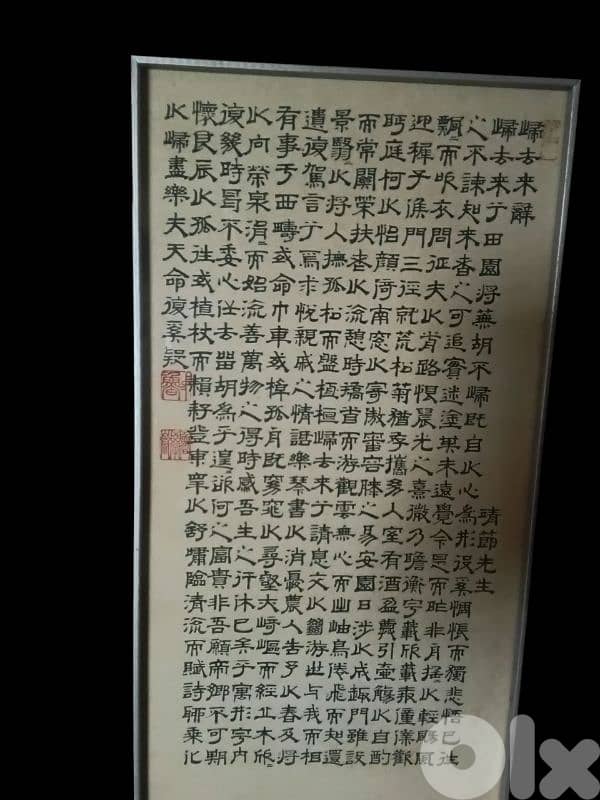 歸去來辭 靖節先生
歸去來兮田園將蕪胡不歸既自以心為形役奚惆悵而獨悲悟已往
之不諫知來者之可追實迷塗其未遠覺今是而昨非舟搖以輕颺風
飄而吹衣問征夫以前路恨晨光之熹微乃瞻衡宇載欣載奔僮僕歡
迎稚子候門三徑就荒松菊猶存攜幼入室有酒盈樽引壺觴以自酌
眄庭柯以怡顏倚南窗以寄傲審容膝之易安園日涉以成趣門雖設
而常關策扶老以流憩時矯首而游觀雲無心而出岫鳥倦飛而知還
景翳以將入撫孤松而盤桓歸去來兮請息交以絕游世與我而相
遺復駕言兮焉求悅親戚之情話樂琴書以消憂農人告予以春及將
有事于西疇或命巾車或棹孤舟既窈窕以尋壑亦崎嶇而經丘木欣
以向榮泉涓而始流善萬物之得時感吾生之行休已矣乎寓形宇內
復幾時曷不委心任去留胡為乎遑何之富貴非吾願帝鄉不可期
懷良辰以孤往或植杖而耘耔登東皋以舒嘯臨清流而賦詩聊乘化
以歸盡樂夫天命復奚疑
olx